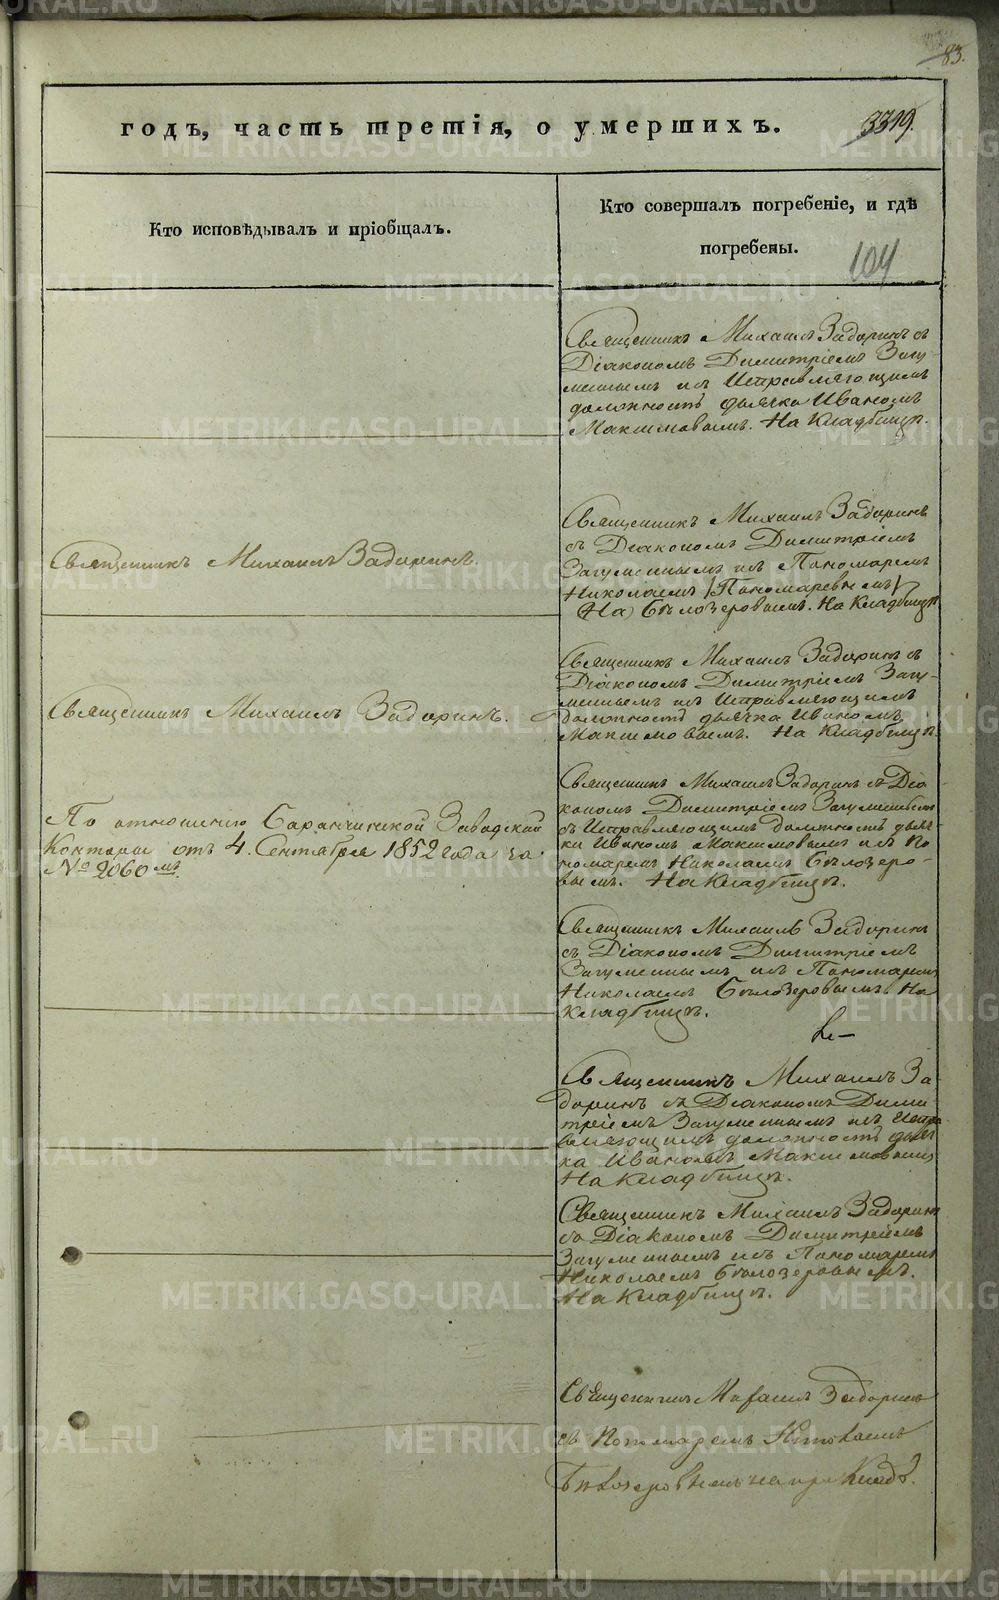 83.
годъ, часть третія, о умершихъ.
3319.
Кто исповѣдывалъ и пріобщалъ.
Кто совершалъ погребеніе, и гдѣ
погребены.
104
Священникъ Михаилъ Задоринъ съ
Діакономъ Димитріемъ Загу-
меннымъ и съ Исправляющимъ
должность дьячка Иваномъ
Максимовымъ. На Кладбищѣ.
Священникъ Михаилъ Задоринъ.
Священникъ Михаилъ Задоринъ
съ Діакономъ Димитріемъ
Загуменнымъ и съ Пономаремъ
Николаемъ /Пономаревымъ/
(На) Бѣлозеровымъ. На Кладбищѣ
Священникъ Михаилъ Задоринъ.
Священникъ Михаилъ Задоринъ съ
Діакономъ Димитріемъ Загу-
меннымъ и съ Исправляющимъ
должность дьячка Иваномъ
Максимовымъ. На Кладбищѣ.
По отношенію Баранчинской Заводской
Конторы отъ 4. Сентября 1852 года за
№ 2060мъ.
Священникъ Михаилъ Задоринъ съ Діа-
кономъ Димитріемъ Загуменнымъ
съ Исправляющимъ должность дьяч-
ка Иваномъ Максимовымъ и съ По
номаремъ Николаемъ Бѣлозеро-
вымъ. На Кладбищѣ.
Священникъ Михаилъ Задоринъ
съ Діакономъ Димитріемъ
Загуменнымъ и съ Пономаремъ
Николаемъ Бѣлозеровымъ На
кладбищѣ.
Священникъ Михаилъ За-
доринъ съ Діакономъ Дими-
тріемъ Загуменнымъ и съ Испра
вляющимъ должность дьяч
ка Иваномъ Максимовымъ
На Кладбищѣ.
Священникъ Михаилъ Задоринъ
съ Діакономъ Димитріемъ
Загуменнымъ и съ Пономаремъ
Николаемъ Бѣлозеровымъ.
На Кладбищѣ.
Священникъ Михаилъ Задоринъ
съ Пономаремъ Николаемъ
Бѣлозеровымъ на при Кладб.
METRIKI.GASO-URAL.RU